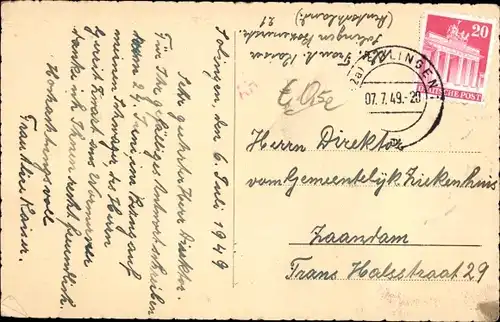 Solingen, den 6. Juli 1949
Sehr geehrter Herr Direktor.
Für Ihr gefälliges Antwortschreiben
vom 24. Juni im Bezug auf
meinen Schwager, des Herrn
Gerrit Zwart aus
danke ich Ihnen recht freundlich.
Hochachtungsvoll
Frau Kaiser.
Frau Kaiser
Solingen
(Deutschland) 21
€ 0,5e
SOLINGEN
(2a)
07.7.49.-20
20
DEUTSCHE POST
Herrn Direktor
vom Gemeentelijk Ziekenhuis
Zaandam
Frans Halsstraat 29